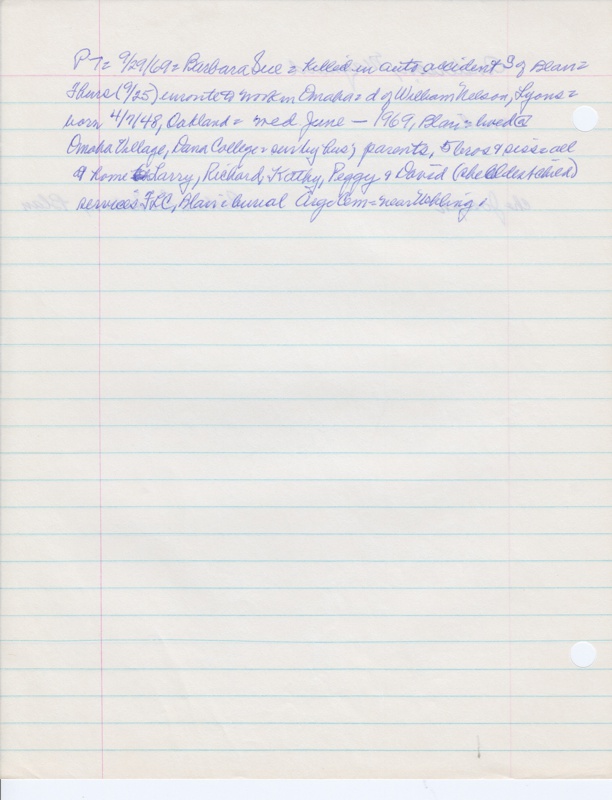 PT= 9/29/69= Barbara Sue= killed in auto accident S of Blair=
Thurs (9/25) enroute to work in Omaha= d of William Nelson, Lyons=
born 4/7/48, Oakland= wed June — 1969, Blair= lived @
Omaha Village, Dana College= sur by hus, parents, 5 bros & siss all
@ home Larry, Richard, Kathy, Peggy & David (she oldest child)
services FLC, Blair= burial Argo Cem= near Uehling.